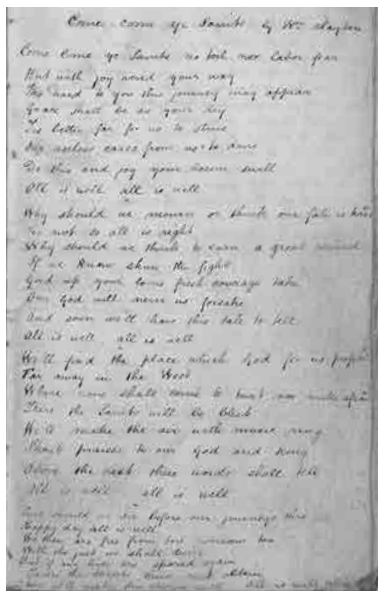 Come come ye Saints by Wm Clayton
Come Come ye Saints no toil nor labor fear
But with joy wend your way
Tho hard to you this journey may appear
Grace shall be as your day
Tis better far for us to strive
Our useless cares from us to drive
Do this and joy your bosoms swell
All is well all is well
Why should we mourn or think our lot is hard
Tis not so all is right
Why should we think to earn a great reward
If we know shun the fight
Gird up your loins fresh courage take
Our God will never us forsake
And soon we'll have this tale to tell
All is well all is well
We'll find the place which God for us prepared
Far away in the West
Where none shall come to hurt nor make afraid
There the Saints will be blest
We'll make the air with music ring
Shout praises to our God and King
Above the rest these words shall tell
All is well all is well
And should we die before our journeys
Happy day all is well
We then are free from toil sorrow too
With the just we shall dwell
But if our lives are spared again